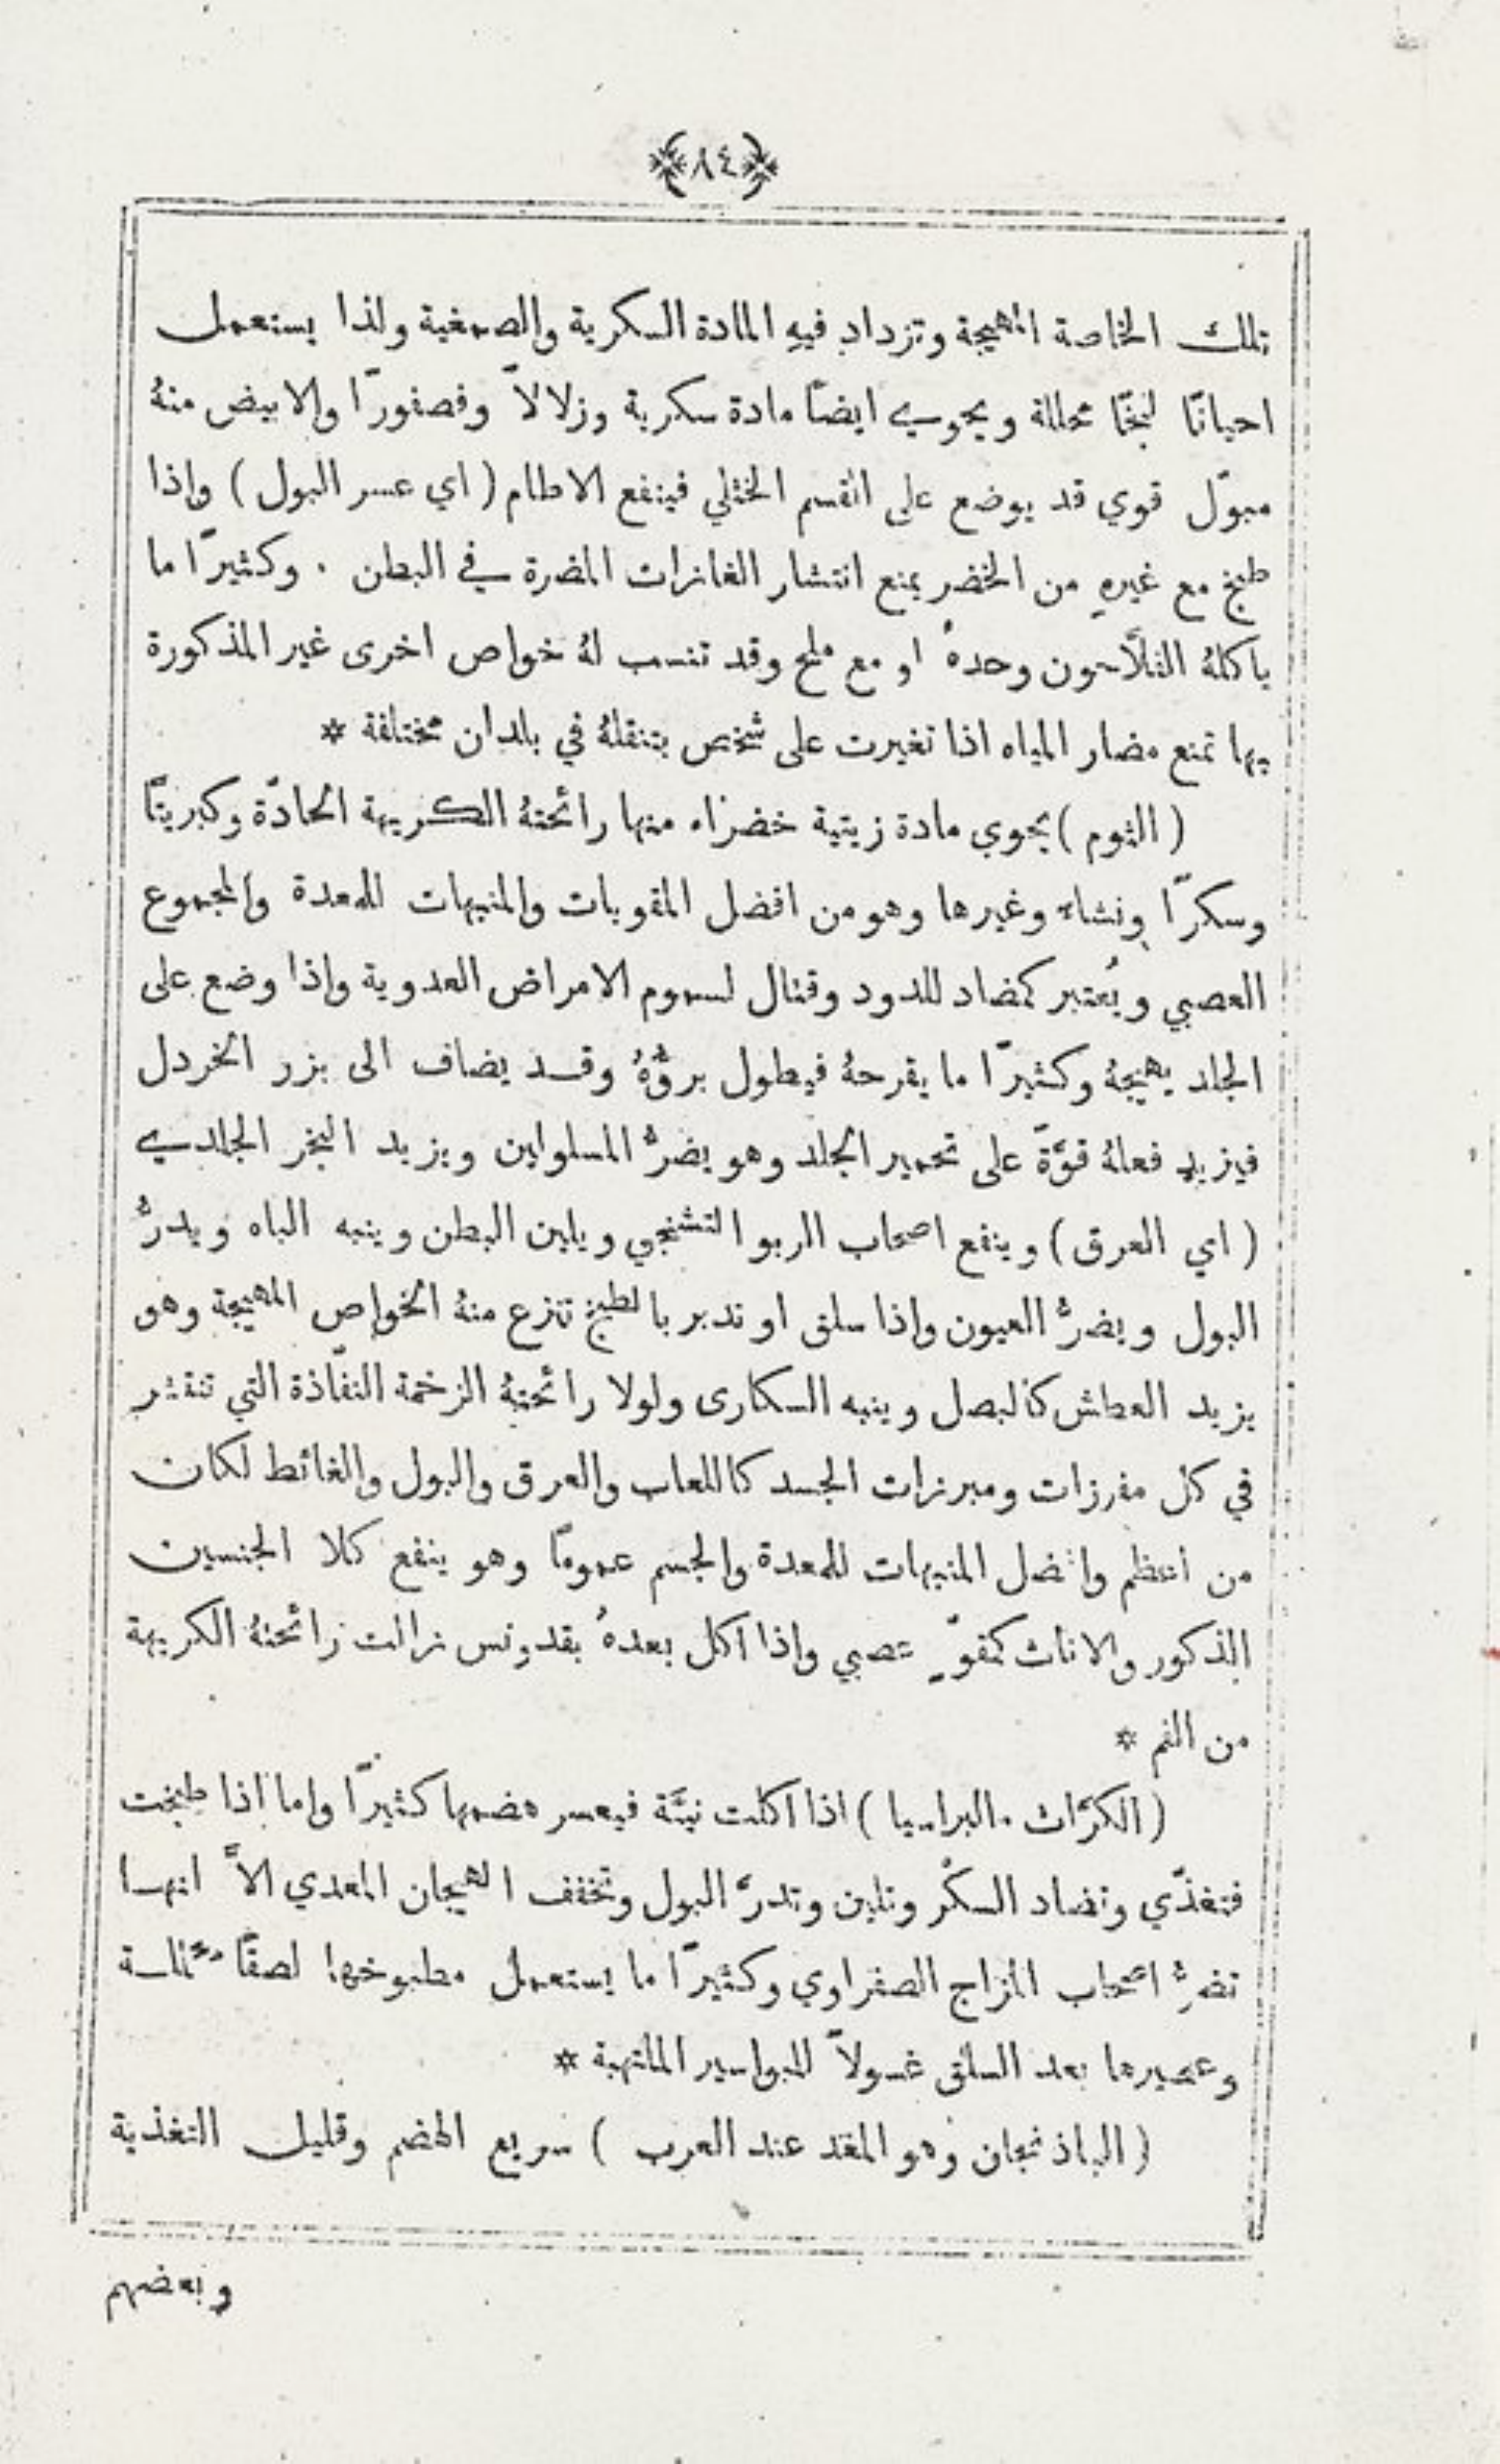 ﴿٨٤﴾
تلك الخاصة المهيجة وتزداد فيهِ المادة السكرية والصمغية ولذا يستعمل
احيانًا لبخًا محللة ويحوي ايضًا مادة سكرية وزلالاً وفصفورًا والابيض منهُ
مبوّل قوي قد يوضع على القسم الخثلي فينفع الاطام (اي عسر البول) واذا
طبخ مع غيرهِ من الخضر يمنع انتشار الغازات المضرة في البطن . وكثيرًا ما
ياكلهُ الفلاَّحون وحدهُ او مع ملح وقد تنسب لهُ خواص اخرى غير المذكورة
بها تمنع مضار المياه اذا تغيرت على شخص بتنقلهُ في بلدان مختلفة *
(الثوم) يحوي مادة زيتية خضراء منها رائحتهُ الكريهة الحادّة وكبريتًا
وسكرًا ونشاء وغيرها وهو من افضل المقويات والمنبهات للمعدة والمجموع
العصبي ويُعتبر كمضاد للدود وقتال لسموم الامراض العدوية واذا وضع على
الجلد يهيجهُ وكثيرًا ما يقرحهُ فيطول برؤُهُ وقد يضاف الى بزر الخردل
فيزيد فعلهُ قوَّة على تحمير الجلد وهو يضرُّ المسلولين ويزيد البخر الجلدي
(اي العرق) وينفع اصحاب الربو التشنجي ويلين البطن وينبه الباه ويدرُّ
البول ويضرُّ العيون واذا سلق او تدبر بالطبخ تنزع منهُ الخواص المهيجة وهو
يزيد العطش كالبصل وينبه السكارى ولولا رائحتهُ الزخمة النفّاذة التي تنتشر
في كل مفرزات ومبرزات الجسد كاللعاب والعرق والبول والغائط لكان
من اعظم وافضل المنبهات للمعدة والجسم عمومًا وهو ينفع كلا الجنسين
الذكور والاناث كمقوٍّ عصبي واذا اكل بعدهُ بقدونس زالت رائحتهُ الكريهة
من الفم *
(الكرّاث . البراسيا) اذا اكلت نيَّة فيعسر هضمها كثيرًا واما اذا طبخت
فتغذّي وتضاد السكْر وتلين وتدرُّ البول وتخفف الهيجان المعدي الاَّ انها
تضرُّ اصحاب المزاج الصفراوي وكثيرًا ما يستعمل مطبوخها لصقًا محللة
وعصيرها بعد السلق غسولاً للبواسير الملتهبة *
(الباذنجان وهو المغد عند العرب) سريع الهضم وقليل التغذية
وبعضهم